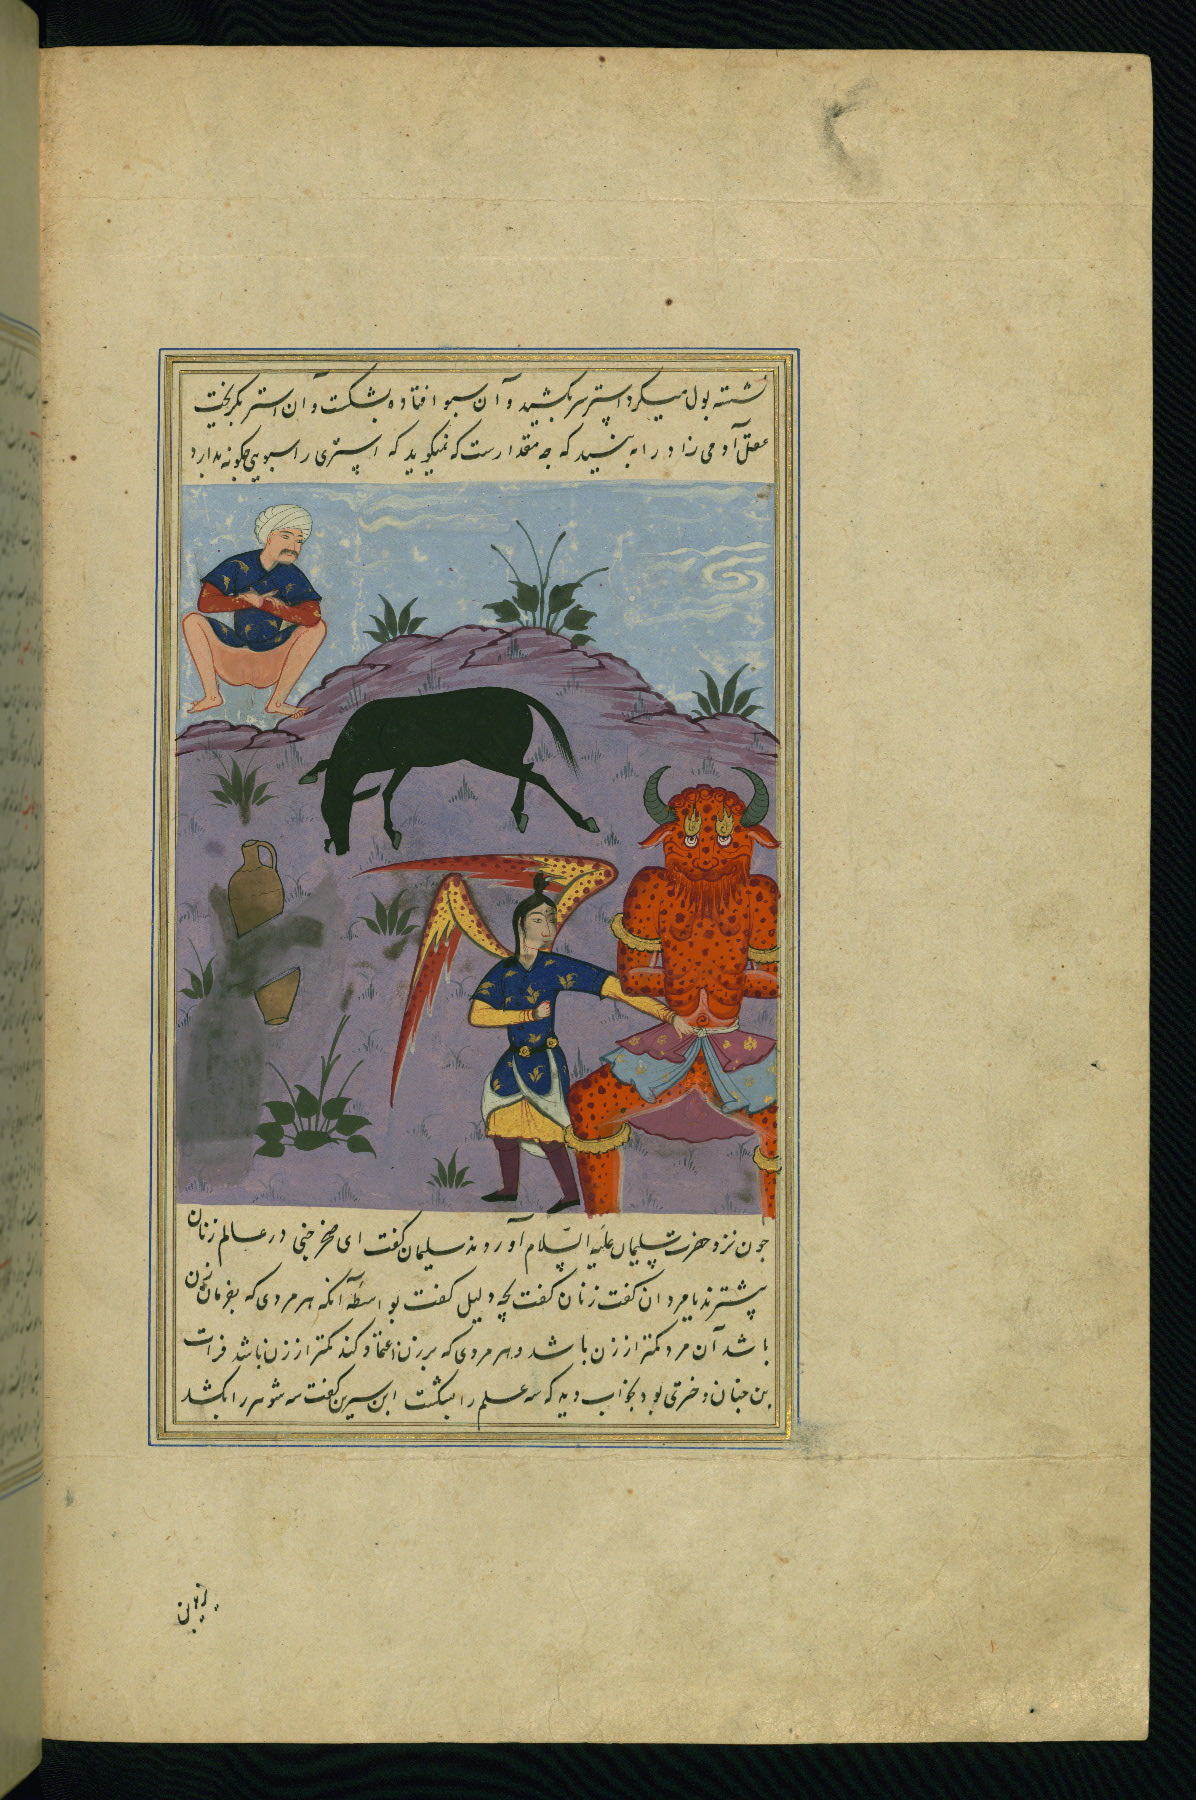 نشسته بول میکرد استر سر بکشید و آن سبو افتاده بشکست و ان استر بگریخت
عقل آدمی زاد را به بینید که چه مقدارست که نمیگوید که استری را سبویی چگونه بدارد
چون نزد حضرت سلیمان علیه السلام آوردند سلیمان گفت ای صخر جنی در عالم زنان
بیشترند یا مردان گفت زنان گفت بچه دلیل گفت بواسطه آنکه هر مردی که بفرمان زن
باشد آن مرد کمتر از زن باشد و هر مردی که بر زن اعتماد کند کمتر از زن باشد فرات
بن حنان دختری بود بخواب دید که سه علم را بشکست ابن سیرین گفت سه شوهر را بکشد